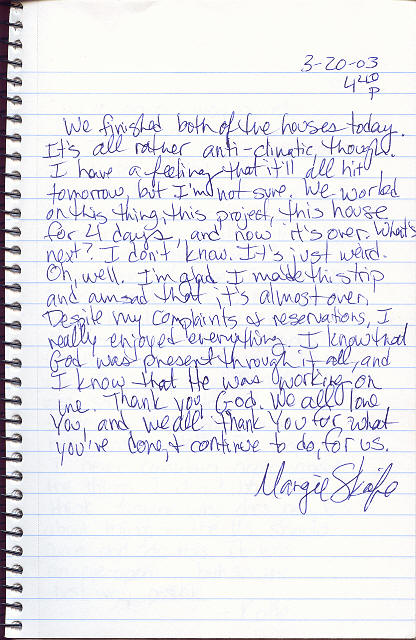 3-20-03
4:20
p
We finished both of the houses today.
It's all rather anti-climatic, though.
I have a feeling that it'll all hit
tomorrow, but I'm not sure. We worked
on this thing, this project, this house
for 4 days, and now it's over. What's
next? I don't know. It's just weird.
Oh, well. I'm glad I made this trip
and am sad that it's almost over.
Despite my complaints & reservations, I
really enjoyed everything. I know that
God was present through it all, and
I know that He was working on
me. Thank you, God. We all love
You, and we all thank You for what
you've done, & continue to do, for us.
Margie